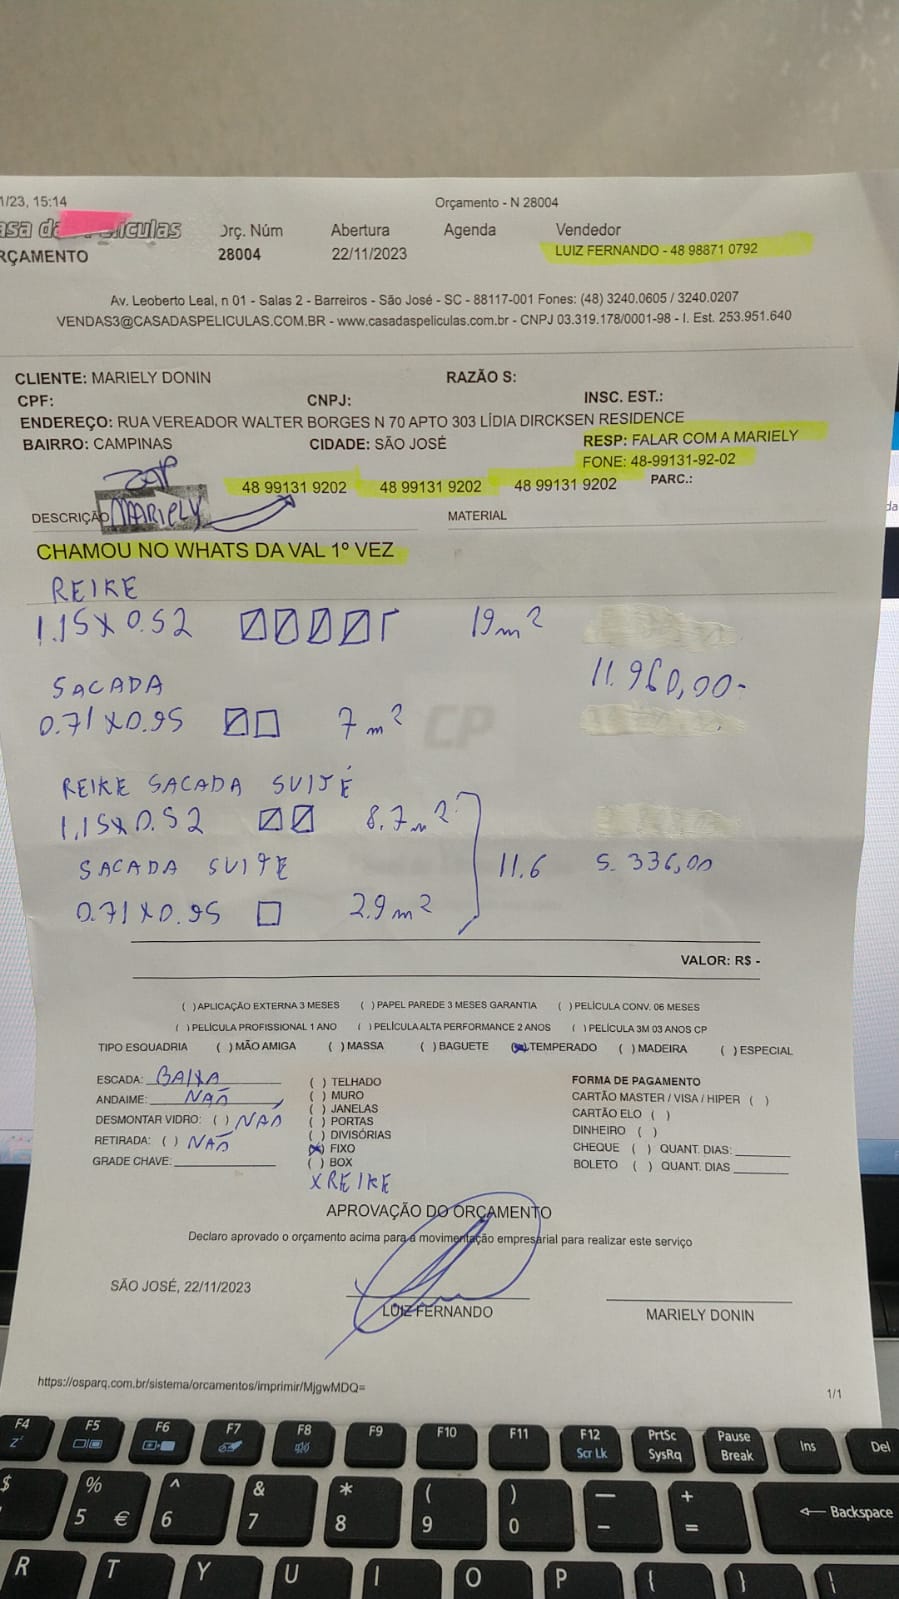 1/23, 15:14 Orçamento - N 28004
asa das Películas Orç. Núm Abertura Agenda Vendedor
RÇAMENTO 28004 22/11/2023 LUIZ FERNANDO - 48 98871 0792
Av. Leoberto Leal, n 01 - Salas 2 - Barreiros - São José - SC - 88117-001 Fones: (48) 3240.0605 / 3240.0207
VENDAS3@CASADASPELICULAS.COM.BR - www.casadaspeliculas.com.br - CNPJ 03.319.178/0001-98 - I. Est. 253.951.640
CLIENTE: MARIELY DONIN RAZÃO S:
CPF: CNPJ: INSC. EST.:
ENDEREÇO: RUA VEREADOR WALTER BORGES N 70 APTO 303 LÍDIA DIRCKSEN RESIDENCE
BAIRRO: CAMPINAS CIDADE: SÃO JOSÉ RESP: FALAR COM A MARIELY
FONE: 48-99131-92-02
48 99131 9202 48 99131 9202 48 99131 9202 PARC.:
DESCRIÇÃO MARIELY MATERIAL
CHAMOU NO WHATS DA VAL 1º VEZ
REIKE
1.15X0.52 19m²
11.960,00-
SACADA
0.71X0.95 7m²
CP
REIKE SACADA SUITE
1.15X0.52 8.7m²
SACADA SUITE 11.6 5.336,00
0.71X0.95 2.9m²
VALOR: R$ -
( )APLICAÇÃO EXTERNA 3 MESES ( )PAPEL PAREDE 3 MESES GARANTIA ( )PELÍCULA CONV. 06 MESES
( )PELÍCULA PROFISSIONAL 1 ANO ( )PELÍCULA ALTA PERFORMANCE 2 ANOS ( )PELÍCULA 3M 03 ANOS CP
TIPO ESQUADRIA ( )MÃO AMIGA ( )MASSA ( )BAGUETE (X)TEMPERADO ( )MADEIRA ( )ESPECIAL
ESCADA: BAIXA ( ) TELHADO FORMA DE PAGAMENTO
ANDAIME: NÃO ( ) MURO CARTÃO MASTER / VISA / HIPER ( )
( ) JANELAS CARTÃO ELO ( )
DESMONTAR VIDRO: ( ) NÃO ( ) PORTAS DINHEIRO ( )
RETIRADA: ( ) NÃO ( ) DIVISÓRIAS CHEQUE ( ) QUANT. DIAS:
GRADE CHAVE: (X) FIXO BOLETO ( ) QUANT. DIAS
( ) BOX
X REIKE
APROVAÇÃO DO ORÇAMENTO
Declaro aprovado o orçamento acima para a movimentação empresarial para realizar este serviço
SÃO JOSÉ, 22/11/2023
LUIZ FERNANDO MARIELY DONIN
https://osparq.com.br/sistema/orcamentos/imprimir/MjgwMDQ= 1/1
F4 F5 F6 F7 F8 F9 F10 F11 F12 PrtSc Pause Ins Del
Scr Lk SysRq Break
$ % ^ & * ( ) — + Backspace
5 € 6 7 8 9 0 - =
R T Y U I O P { } |